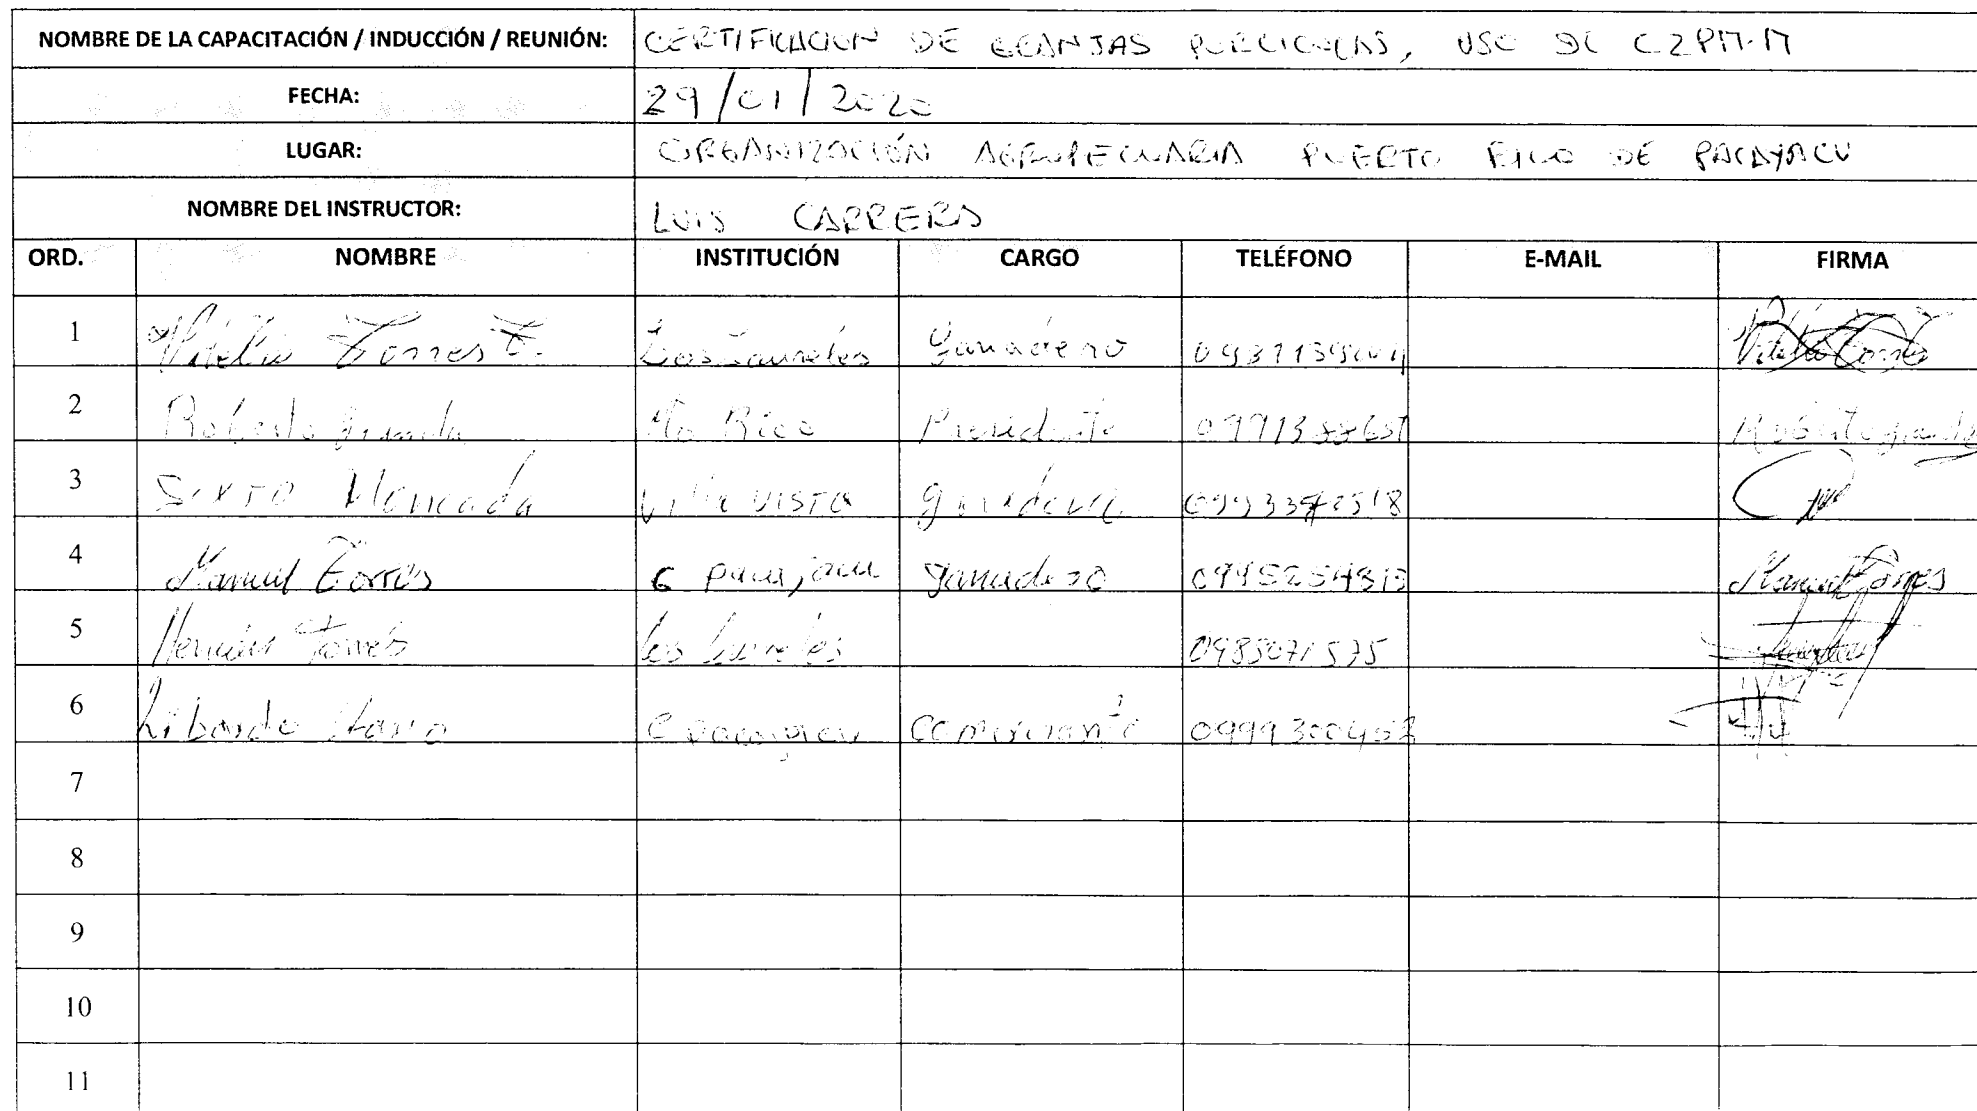 NOMBRE DE LA CAPACITACIÓN / INDUCCIÓN / REUNIÓN: CERTIFICACION DE GRANJAS PORCICOLAS, USO DE CZPM-M
FECHA: 29/01/2020
LUGAR: ORGANIZACIÓN AGROPECUARIA PUERTO RICO DE PACAYACU
NOMBRE DEL INSTRUCTOR: LUIS CARRERA
ORD. NOMBRE INSTITUCIÓN CARGO TELÉFONO E-MAIL FIRMA
1 Vitelio Torres T. Los Laureles Ganadero Vitelio Torres
2 Roberto Granda Pto Rico Presidente Roberto Granda
3 SIXTO Moncada Villa VISTA ganadero
4 Manuel Torres ganadero Manuel Torres
5 Torres los laureles 0985071575
6 comerciante
7
8
9
10
11